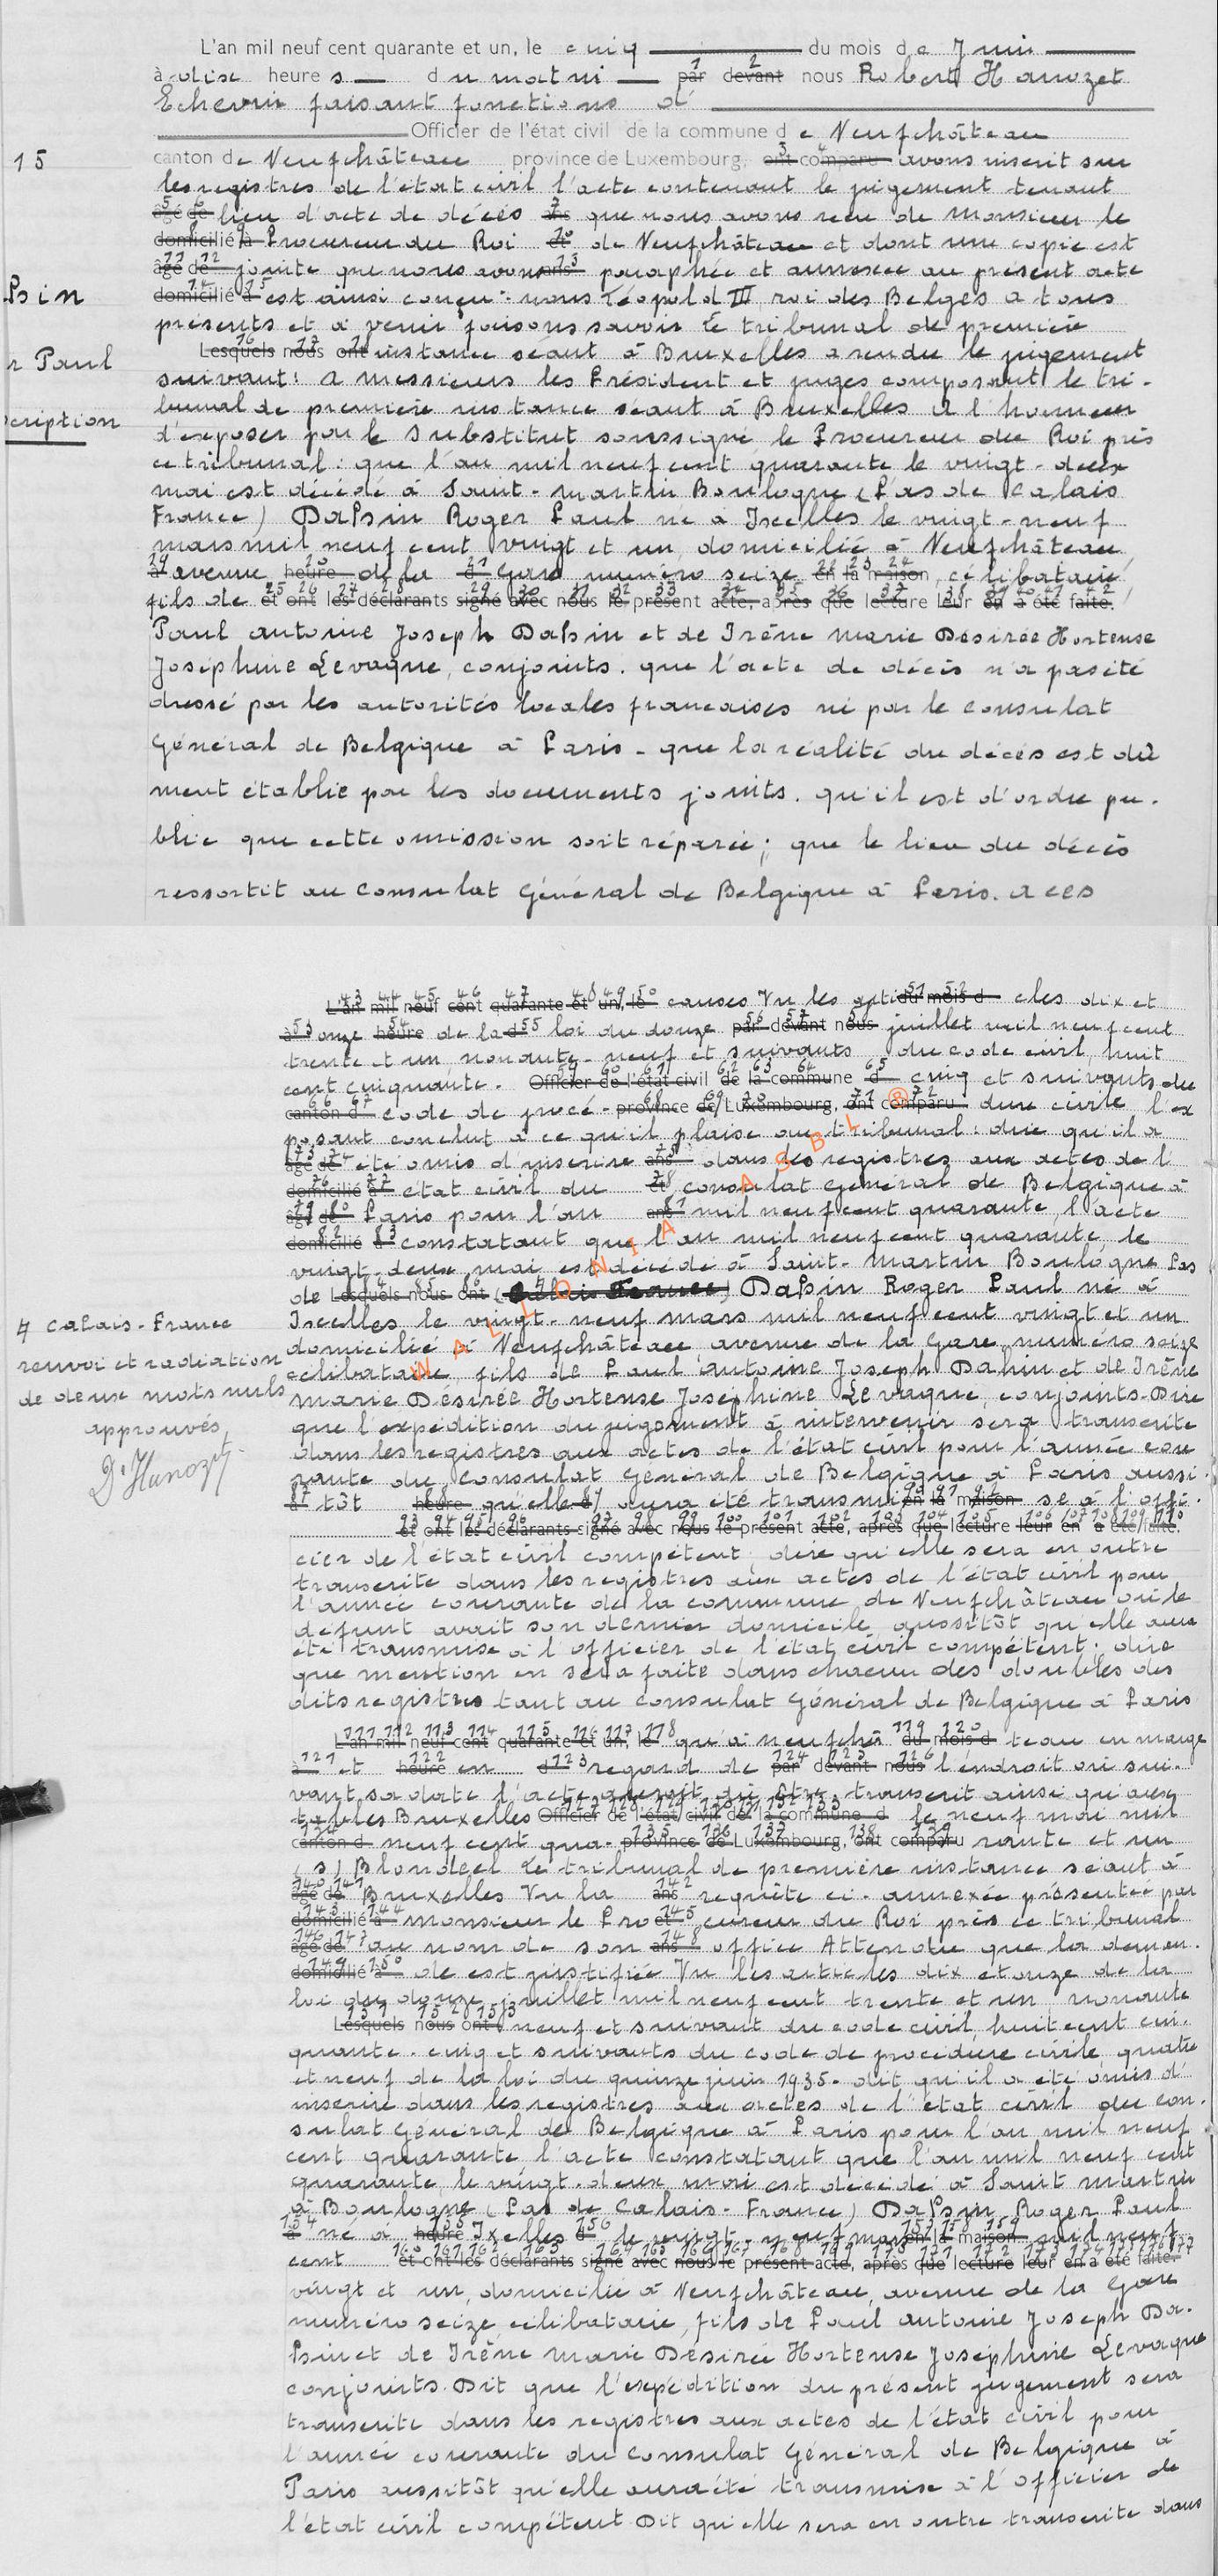 L'an mil neuf cent quarante et un, le cinq du mois de Juin
à dix heures du matin par devant nous Robert Hanozet
Echevin faisant fonctions d'
Officier de l'état civil de la commune de Neufchâteau
15
canton de Neufchâteau province de Luxembourg, ont comparu avons inscrit sur
les registres de l'état civil l'acte contenant le jugement tenant
âgé de lieu d'acte de décés ans que nous avons recu de Monsieur le
domicilié à Procureur du Roi et de Neufchâteau et dont une copie est
âgé de jointe que nous avons ans paraphée et annexée au présent acte
Psin
domicilié à est ainsi conçu : nous Léopold III, roi des Belges a tous
présents et à venir faisons savoir Le tribunal de première
r Paul
Lesquels nous ont instance séant à Bruxelles a rendu le jugement
suivant : A messieurs les Président et juges composant le tri-
cription
bunal de première instance séant à Bruxelles A l'honneur
d'exposer par le Substitut soussigné le Procureur du Roi près
ce tribunal : que l'an mil neuf cent quarante le vingt-deux
mai est décédé à Saint-Martin Boulogne (Pas de Calais
France) DaPsin Roger Paul né à Ixelles le vingt-neuf
mars mil neuf cent vingt et un, domicilié à Neufchâteau,
à avenue heure de la d Gare numéro seize en la maison, célibataire,
fils de et ont les déclarants signé avec nous le présent acte, après que lecture leur en a été faite.
Paul Antoine Joseph DaPsin et de Irène Marie Désirée Hortense
Joséphine Levaque, conjoints. que l'acte de décès n'a pas été
dressé par les autorités locales francaises ni par le consulat
Général de Belgique à Paris - que la réalité du décès est dû
ment établie par les documents joints. qu'il est d'ordre pu-
blic que cette omission soit réparée ; que le lieu du décès
ressortit au Consulat Général de Belgique à Paris. A ces
L'an mil neuf cent quarante et un, le causes Vu les arti du mois d cles dix et
à onze heure de la d loi du douze par devant nous juillet mil neuf cent
trente et un, nonante-neuf et suivants du code civil, huit
cent cinquante- Officier de l'état civil de la commune d cinq et suivants du
canton d code de procé- province de Luxembourg, ont comparu dure civile l'ex
posant conclut à ce qu'il plaise au tribunal : dire qu'il a
âgé de été omis d'inscrire ans dans les registres aux actes de l'
domicilié à état civil du et consulat Général de Belgique à
âgé de Paris pour l'an ans mil neuf cent quarante, l'acte
domicilié à constatant que l'an mil neuf cent quarante, le
vingt-deux mai est décédé à Saint-Martin Boulogne Pas
de Lesquels nous ont ( France) DaPsin Roger Paul né à
Ixelles le vingt-neuf mars mil neuf cent vingt et un
domicilié à Neufchâteau avenue de la Gare numéro seize
célibataire, fils de Paul Antoine Joseph Dapsin et de Irène
Marie Désirée Hortense Joséphine Levaque, conjoints- Dire
que l'expédition du jugement à intervenir sera transcrite
dans les registres aux actes de l'état civil pour l'année cou
rante du Consulat Général de Belgique à Paris aussi-
à tôt heure qu'elle d aura été transmi en la maison se à l'offi-
et ont les déclarants signé avec nous le présent acte, après que lecture leur en a été faite.
cier de l'état civil compétent, dire qu'elle sera en outre
transcrite dans les registres aux actes de l'état civil pour
l'année courante de la commune de Neufchâteau où le
défunt avait son dernier domicile, aussitôt qu'elle aura
été transmise à l'officier de l'état civil compétent ; dire
que mention en sera faite dans chacun des doubles des
dits registres tant au consulat Général de Belgique à Paris
L'an mil neuf cent quarante et un, le qu'à Neufchâ du mois d teau en marge
à et heure en d regard de par devant nous l'endroit où sui-
vant sa date l'acte aurait dû être transcrit ainsi qu'aux
tables Bruxelles Officier de l'état civil de la commune d le neuf mai mil
canton d neuf cent qua- province de Luxembourg, ont comparu rante et un
(s) Blondeel Le tribunal de première instance séant à
âgé de Bruxelles Vu la ans requête ci-annexée présentée par
domicilié à Monsieur le Pro et cureur du Roi près ce tribunal
âgé de au nom de son ans office Attendu que la deman-
domicilié à de est justifiée Vu les articles dix et onze de la
loi du douze juillet mil neuf cent trente et un, nonante
Lesquels nous ont neuf et suivant du code civil, huit cent cin-
quante-cinq et suivants du code de procédure civile, quatre
et neuf de la loi du quinze juin 1935- dit qu'il a été omis d'
inscrire dans les registres aux actes de l'état civil du con-
sulat Général de Belgique à Paris pour l'an mil neuf
cent quarante l'acte constatant que l'an mil neuf cent
quarante, le vingt-deux mai est décédé à Saint Martin
à Boulogne (Pas de Calais-France) DaPsin Roger Paul
à né à heure Ixelles d le vingt-neuf mars en la maison mil neuf
cent et ont les déclarants signé avec nous le présent acte, après que lecture leur en a été faite.
vingt et un, domicilié à Neufchâteau, avenue de la Gare
numéro seize, célibataire, fils de Paul Antoine Joseph Da-
Psin et de Irène Marie Désirée Hortense Joséphine Levaque
conjoints. Dit que l'expédition du présent jugement sera
transcrite dans les registres aux actes de l'état civil pour
l'année courante du Consulat Général de Belgique à
Paris aussitôt qu'elle aura été transmise à l'officier de
l'état civil compétent Dit qu'elle sera en outre transcrite dans
4 Calais-France
renvoi et radiation
de deux mots nuls
approuvés,
R. Hanozet
WALLONIA ASBL ®